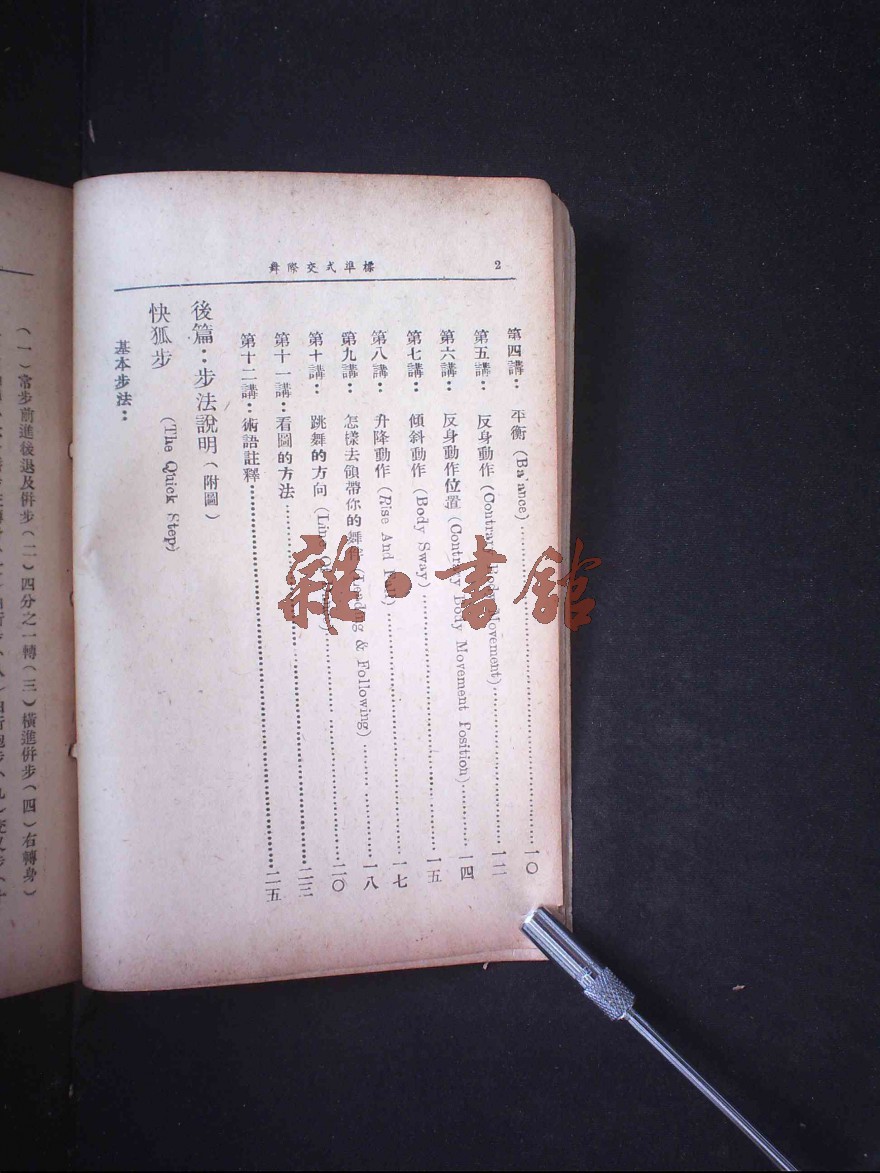 2 標準式交際舞
第四講： 平衡 (Ba'ance)……一〇
第五講： 反身動作 (Contrary Body Movement)……一二
第六講： 反身動作位置 (Contrary Body Movement Position)……一四
第七講： 傾斜動作 (Body Sway)……一五
第八講： 升降動作 (Rise And)……一七
第九講： 怎樣去領帶你的舞 (Leading & Following)……一八
第十講： 跳舞的方向 (Line)……二〇
第十一講：看圖的方法……二三
第十二講：術語註釋……二五
後篇：步法說明（附圖）
快狐步 (The Quick Step)
基本步法：
（一）常步前進後退及併步（二）四分之一轉（三）橫進併步（四）右轉身
雜·書館